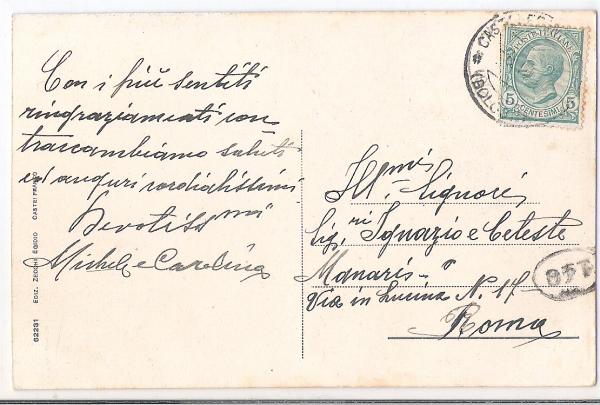 Con i più sentiti
ringraziamenti con-
traccambiamo saluti
ed auguri cordialissimi
Devotissmi
Michele e Carolina
Ill.mi Signori
Sig.ri Ignazio e Celeste
Manaris
Via in Lucina N. 17
Roma
POSTE ITALIANE
5 CENTESIMI 5
(BOLO
62231 EDIZ. ZECCHI EGIDIO CASTELFRANCO